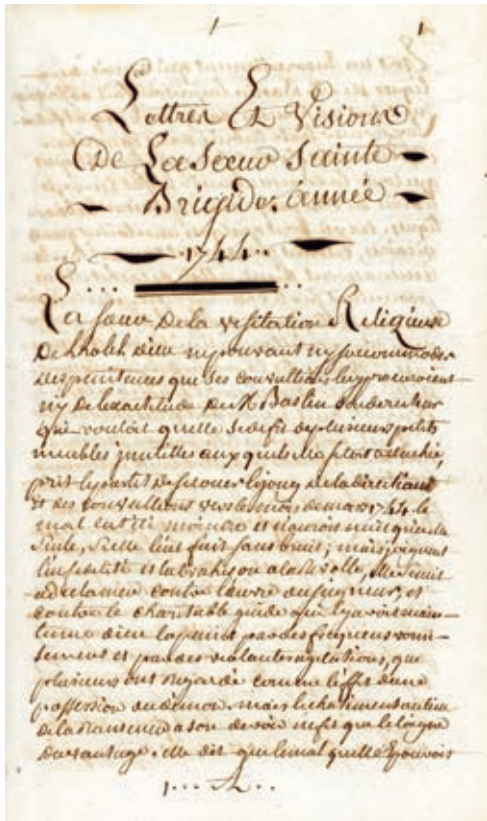 1 1
Lettres Et Visions
De La sœur Sainte
Brigide. année
1744..
La sœur De la visitation Religieuse
De lhotel dieu ne pouvant ny saccommoder
Des penitences que ses convultions luy procuroient
ny De lexactitude De Mr son directeur
qui vouloit quelle se defit de plusieurs petits
meubles inutilles aux quels elle etoit attachée,
prit le parti de secouer le joug de la direction
et des convultions vers le mois de mars 1744. le
mal eut été moindre et nauroit nuit qu'a elle
seule, si elle leut fait sans bruit; mais joignant
a la elle se mit
a declamer contre lœuvre du seigneur, et
contre le charitable guide qui ly avoit main-
tenue dieu la punit par des frequens vomis-
semens et par des violantes agitations, que
plusieurs ont regardé comme leffet dune
possession du demon. mais le chatiment au lieu
de la ramener a son devoir ne fit que
davantage. elle dit que le mal quelle Eprouvoit